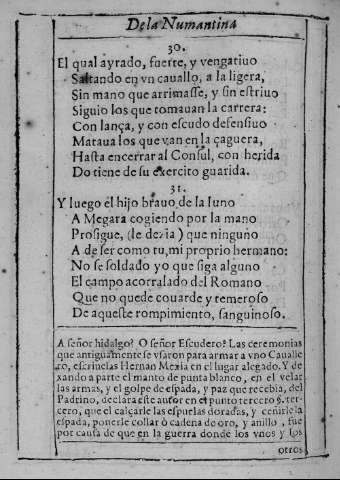 De la Numantina
30.
El qual ayrado, fuerte, y vengatiuo
Saltando en vn cauallo, a la ligera,
Sin mano que arrimasse, y sin estriuo
Siguio los que tomauan la carrera:
Con lança, y con escudo defensiuo
Mataua los que van en la çaguera,
Hasta encerrar al Consul, con herida
Do tiene de su exercito guarida.
31.
Y luego el hijo brauo de la Iuno
A Megara cogiendo por la mano
Prosigue, (le dezia) que ninguno
A de ser como tu, mi proprio hermano:
No se soldado yo que siga alguno
El campo acorralado del Romano
Que no quede couarde y temeroso
De aqueste rompimiento, sanguinoso.
A señor hidalgo? O señor Escudero? Las ceremonias
que antiguamente se vsaron para armar a vno Caualle
ro, escriuelas Hernan Mexia en el lugar alegado. Y de
xando a parte el manto de punta blanco, en el velar
las armas, y el golpe de espada, y paz que recebia, del
Padrino, declara este autor en el punto tercero §. ter-
cero, que el calçarle las espuelas doradas, y ceñirle la
espada, ponerle collar ò cadena de oro, y anillo, fue
por causa de que en la guerra donde los vnos y los
otros